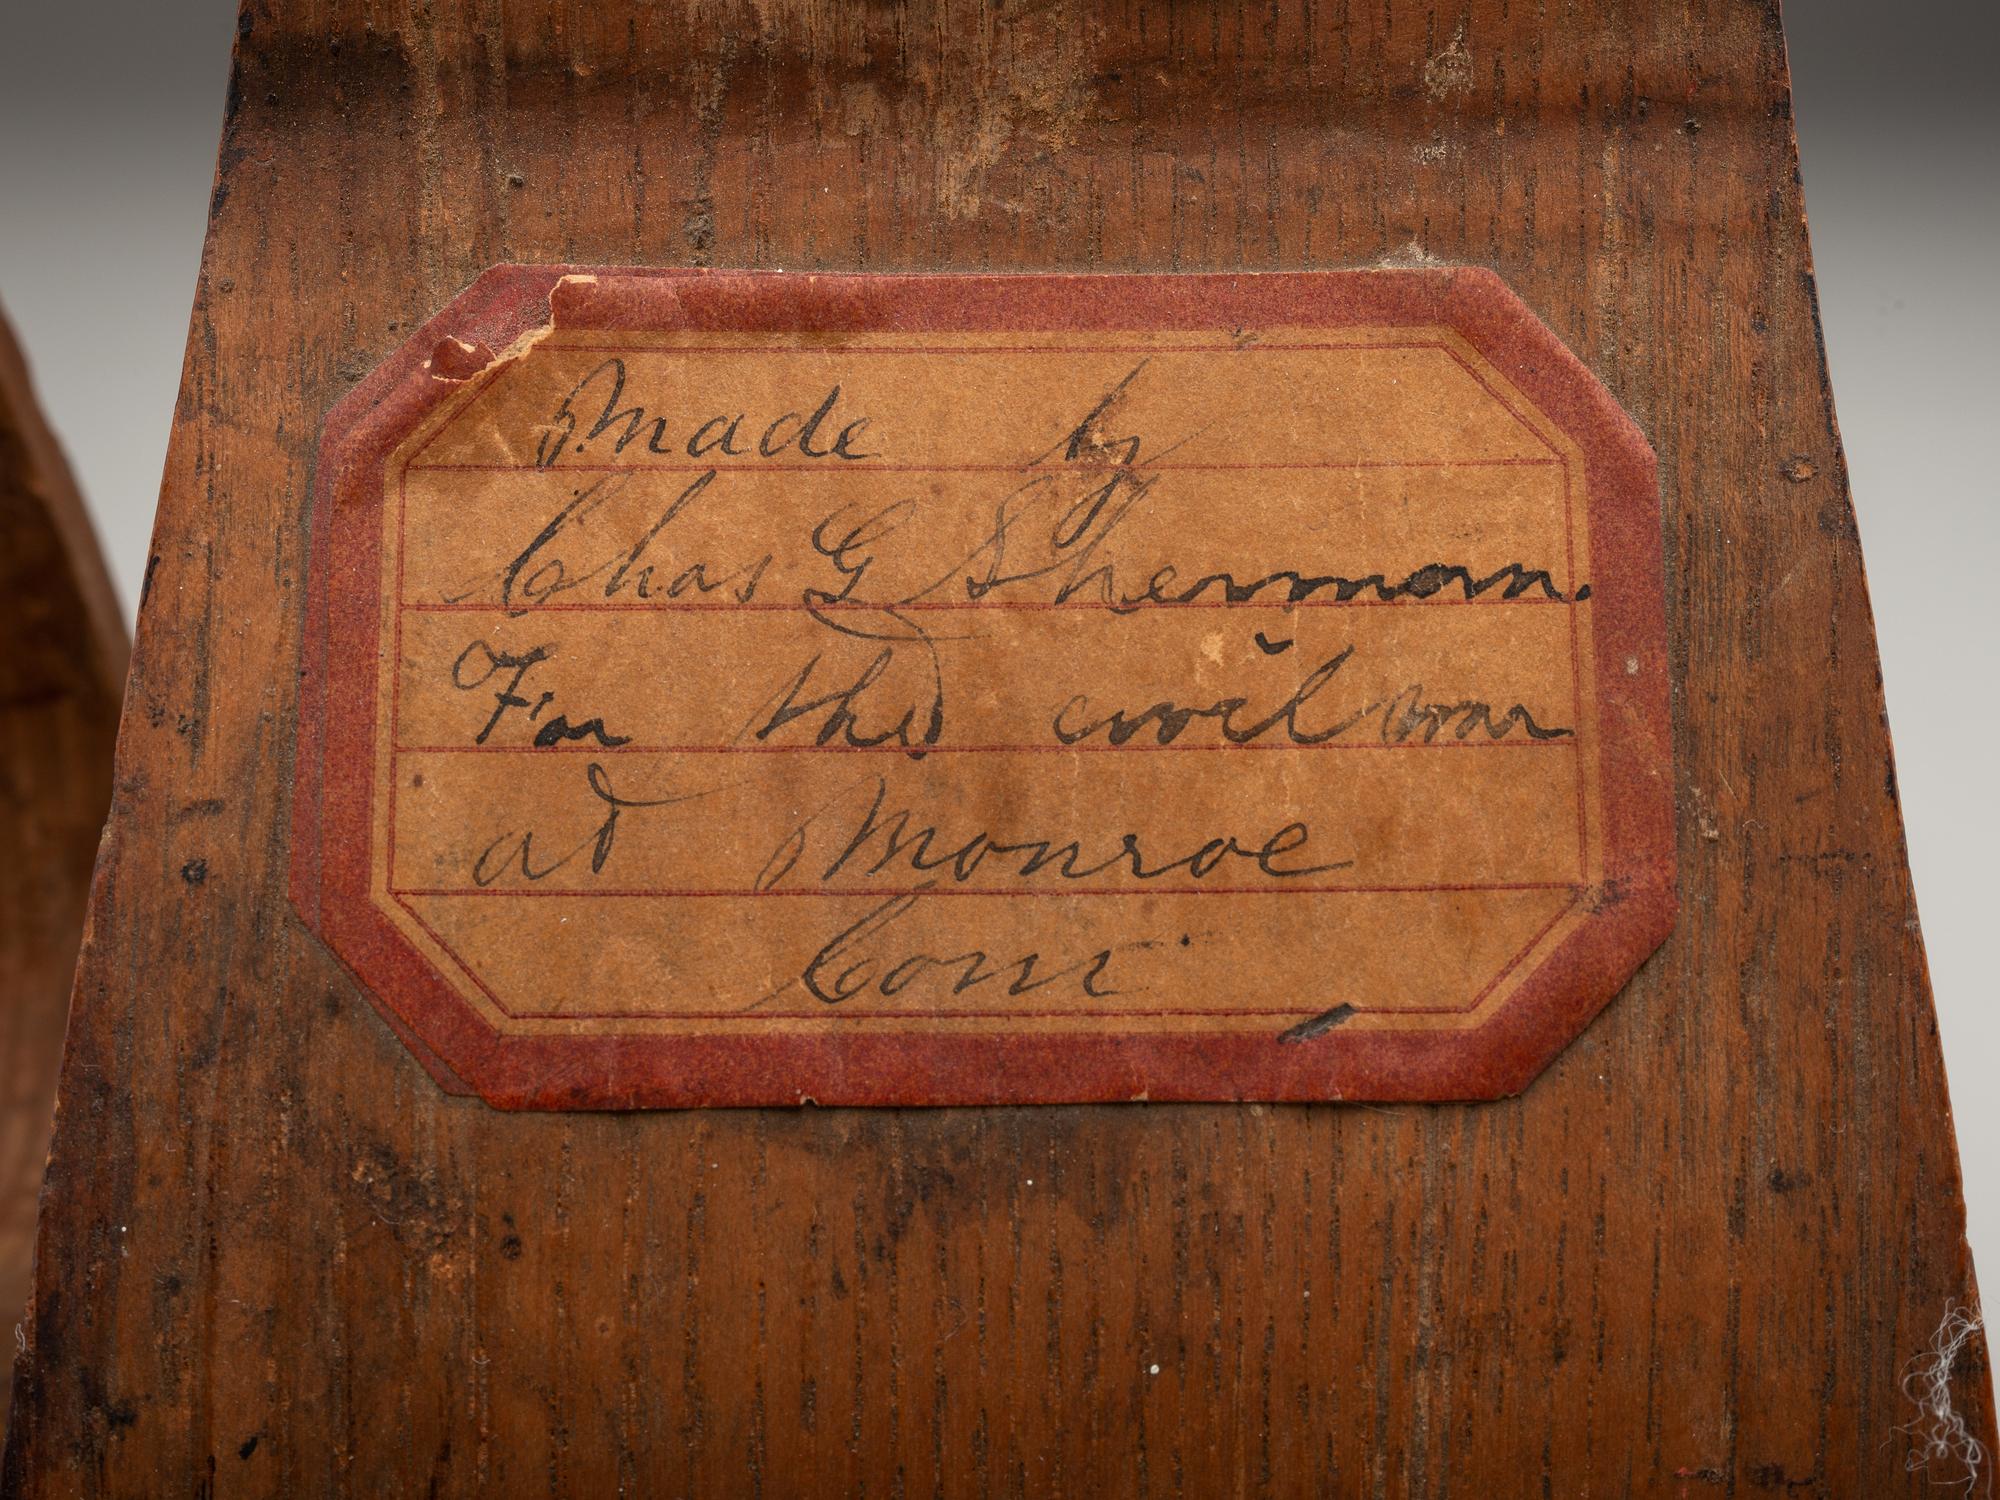 Made by
Chas G Sherman.
For the civil war
at Monroe
Conn